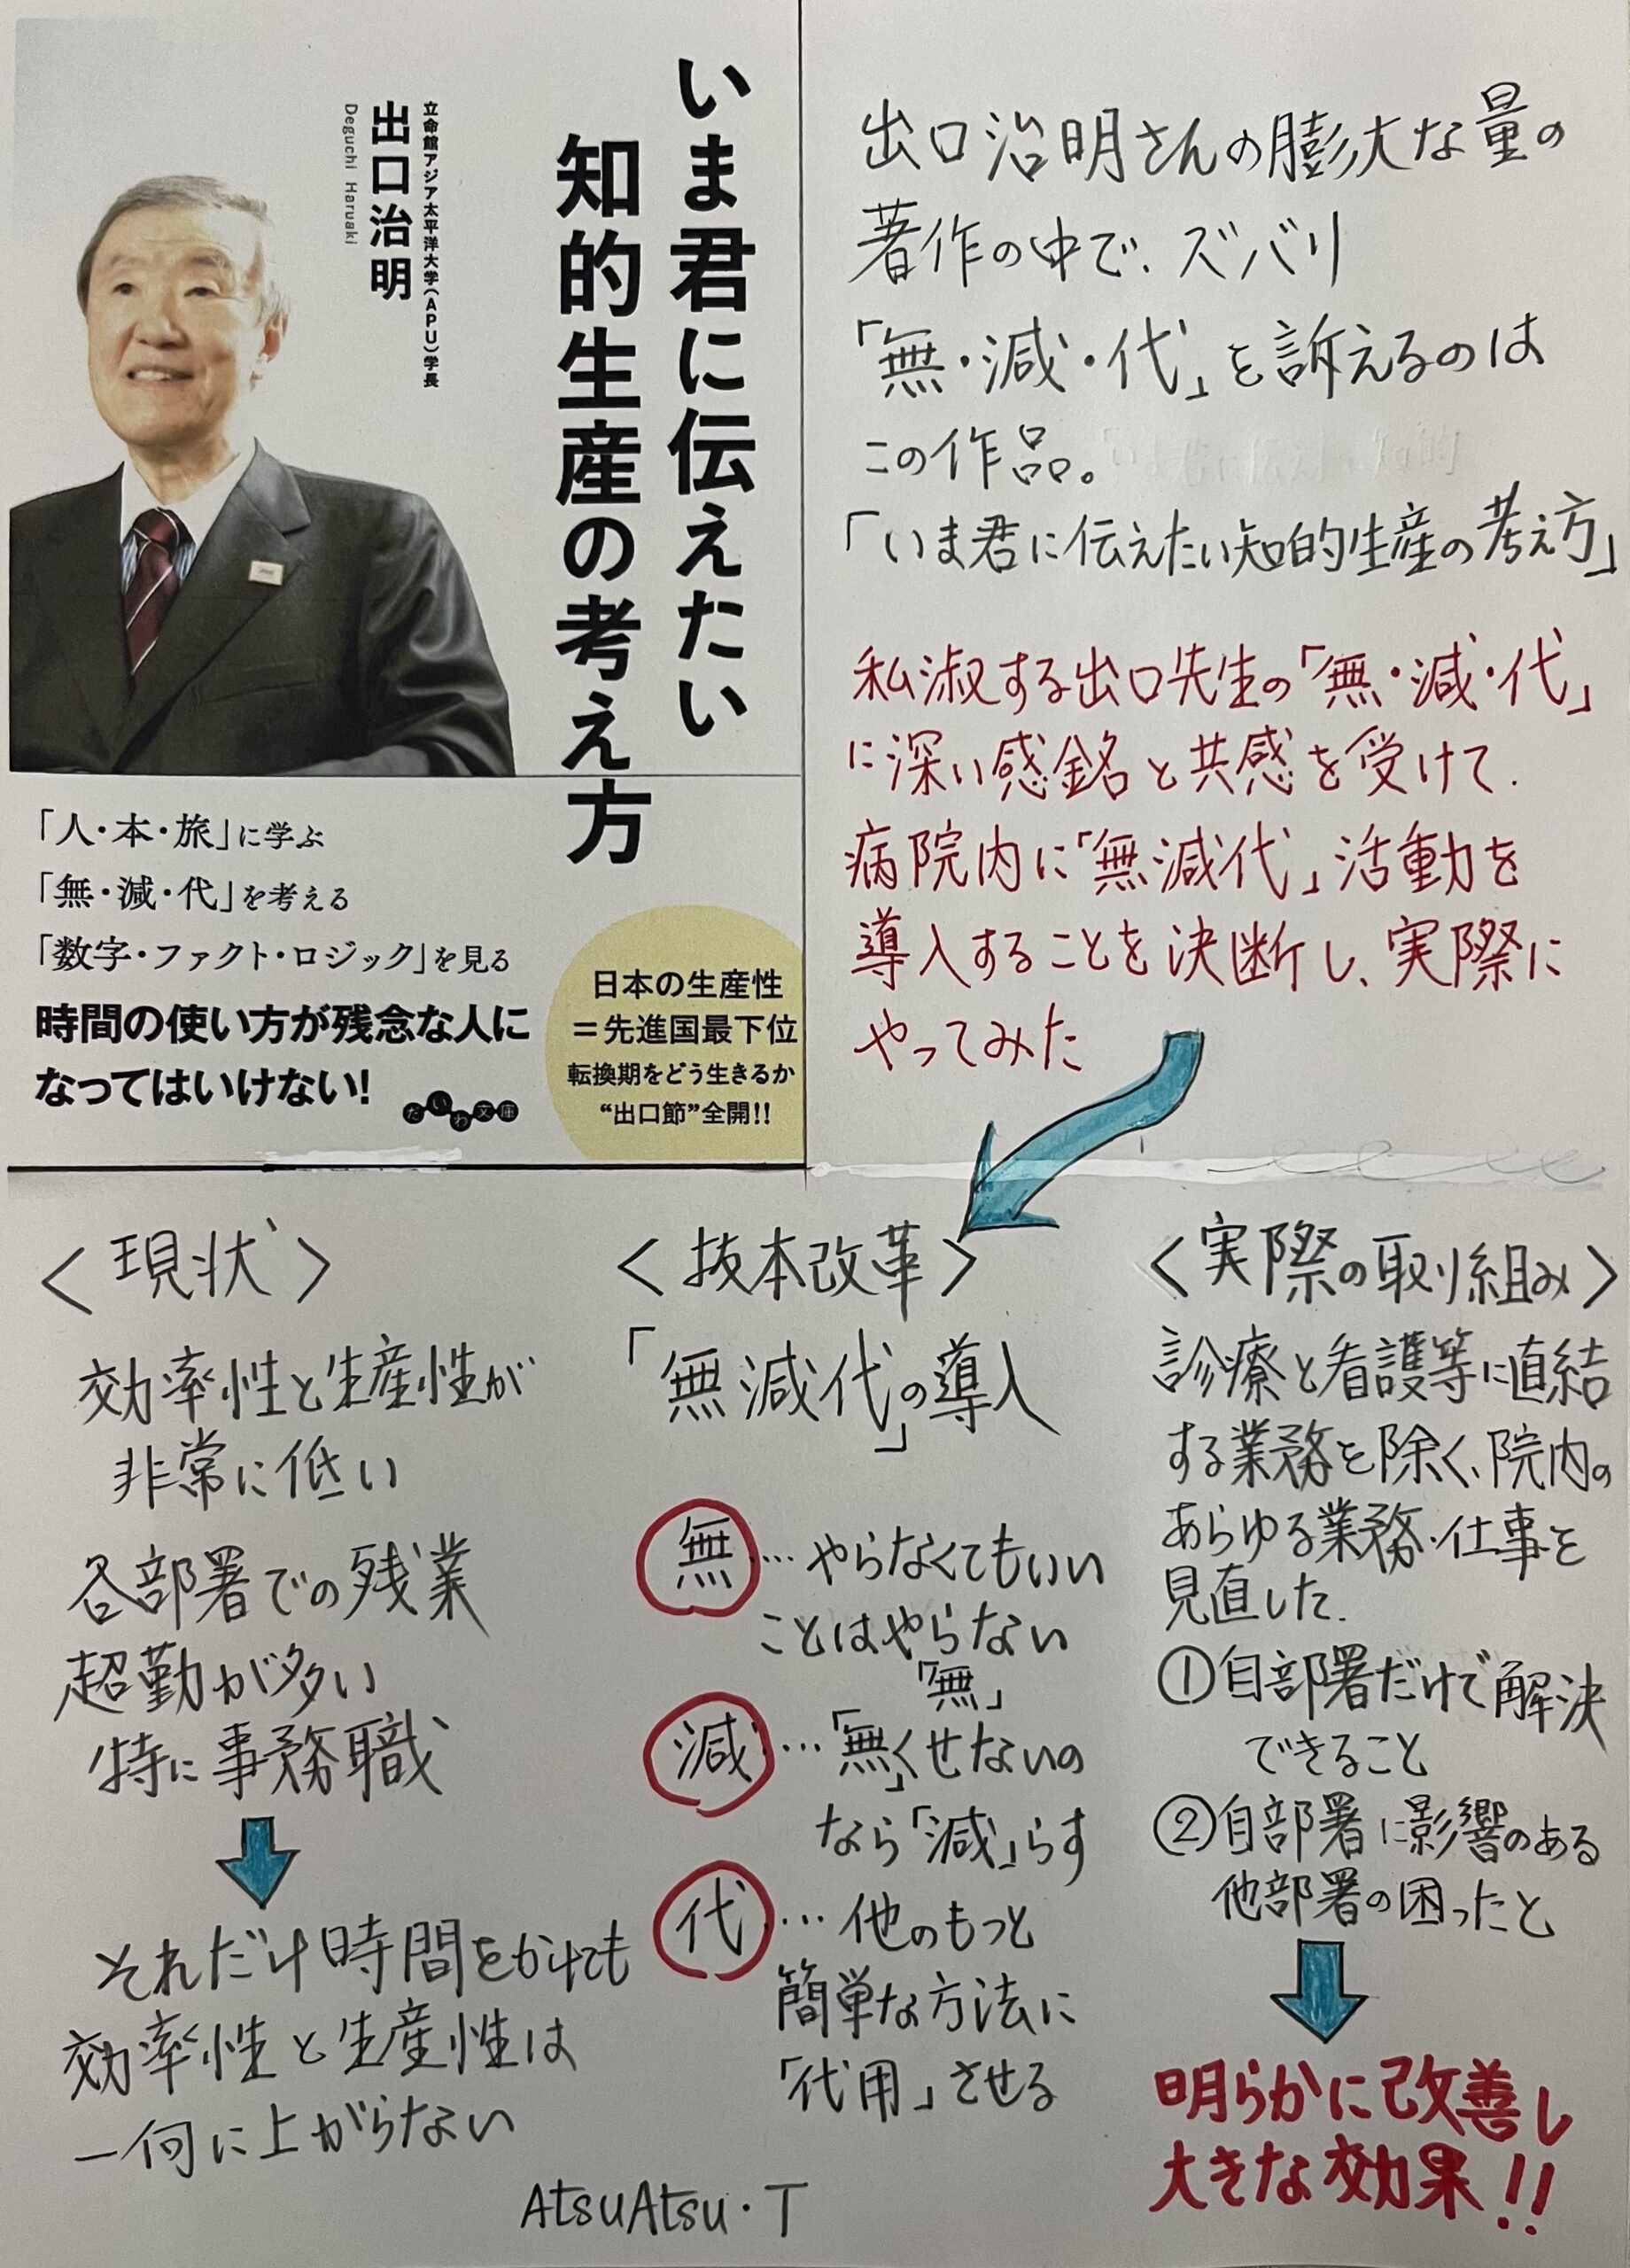 いま君に伝えたい
知的生産の考え方
立命館アジア太平洋大学(APU)学長
出口治明
Deguchi Haruaki
「人・本・旅」に学ぶ
「無・減・代」を考える
「数字・ファクト・ロジック」を見る
時間の使い方が残念な人に
なってはいけない!
だいわ文庫
日本の生産性
=先進国最下位
転換期をどう生きるか
“出口節”全開!!
出口治明さんの膨大な量の
著作の中で、ズバリ
「無・減・代」を訴えるのは
この作品。
「いま君に伝えたい知的生産の考え方」
私淑する出口先生の「無・減・代」
に深い感銘と共感を受けて、
病院内に「無減代」活動を
導入することを決断し、実際に
やってみた
<現状>
効率性と生産性が
非常に低い
各部署での残業
超勤が多い
特に事務職
それだけ時間をかけても
効率性と生産性は
一向に上がらない
<抜本改革>
「無減代」の導入
無…やらなくてもいい
ことはやらない
「無」
減…「無」くせないの
なら「減」らす
代…他のもっと
簡単な方法に
「代用」させる
<実際の取り組み>
診療と看護等に直結
する業務を除く、院内の
あらゆる業務・仕事を
見直した。
①自部署だけで解決
できること
②自部署に影響のある
他部署の困ったと
明らかに改善し
大きな効果!!
AtsuAtsu・T